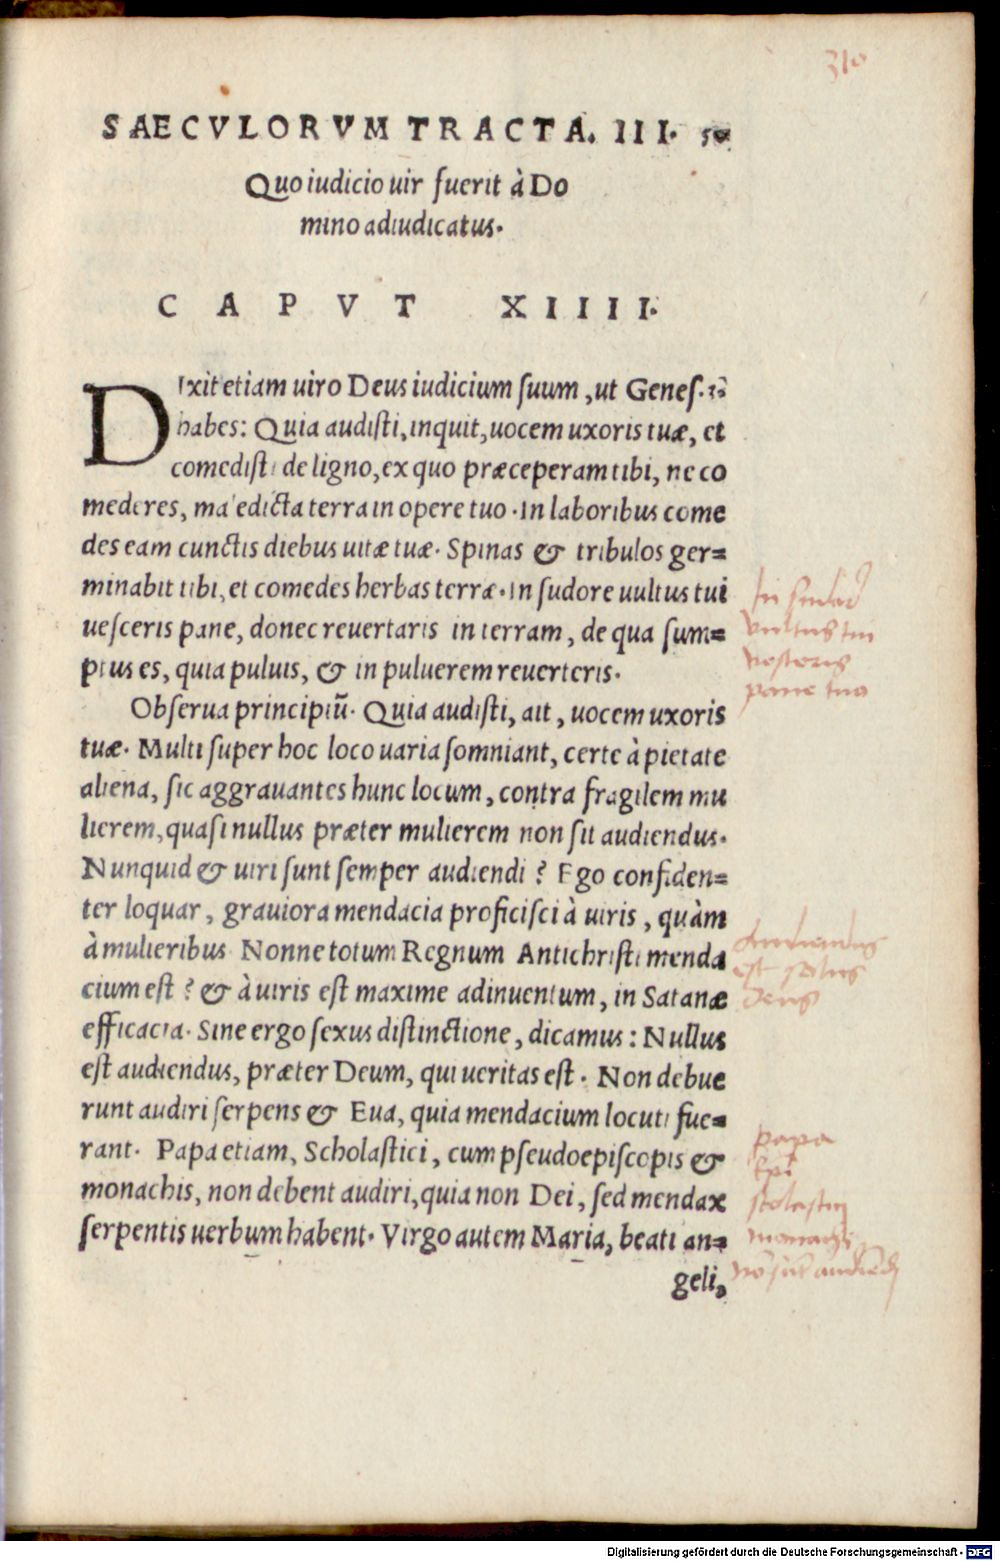 310
SAECVLORVM TRACTA. III.
Quo iudicio uir fuerit à Do
mino adiudicatus.
CAPVT XIIII.
DIxit etiam uiro Deus iudicium suum, ut Genes. 3.
habes: Quia audisti, inquit, uocem uxoris tuæ, et
comedisti de ligno, ex quo præceperam tibi, ne co
mederes, maledicta terra in opere tuo. In laboribus come
des eam cunctis diebus uitæ tuæ. Spinas & tribulos ger=
minabit tibi, et comedes herbas terræ. In sudore uultus tui
uesceris pane, donec reuertaris in terram, de qua sum=
ptus es, quia puluis, & in puluerem reuerteris.
Obserua principiũ. Quia audisti, ait, uocem uxoris
tuæ. Multi super hoc loco uaria somniant, certe à pietate
aliena, sic aggrauantes hunc locum, contra fragilem mu
lierem, quasi nullus præter mulierem non sit audiendus.
Nunquid & uiri sunt semper audiendi? Ego confiden=
ter loquar, grauiora mendacia proficisci à uiris, quàm
à mulieribus Nonne totum Regnum Antichristi menda
cium est? & à uiris est maxime adinuentum, in Satanæ
efficacia. Sine ergo sexus distinctione, dicamus: Nullus
est audiendus, præter Deum, qui ueritas est. Non debue
runt audiri serpens & Eua, quia mendacium locuti fue=
rant. Papa etiam, Scholastici, cum pseudoepiscopis &
monachis, non debent audiri, quia non Dei, sed mendax
serpentis uerbum habent. Virgo autem Maria, beati an=
geli,
vultus tui
pane tuo
Audiendus
est solus
Deus
papa
Epi
Digitalisierung gefördert durch die Deutsche Forschungsgemeinschaft - DFG